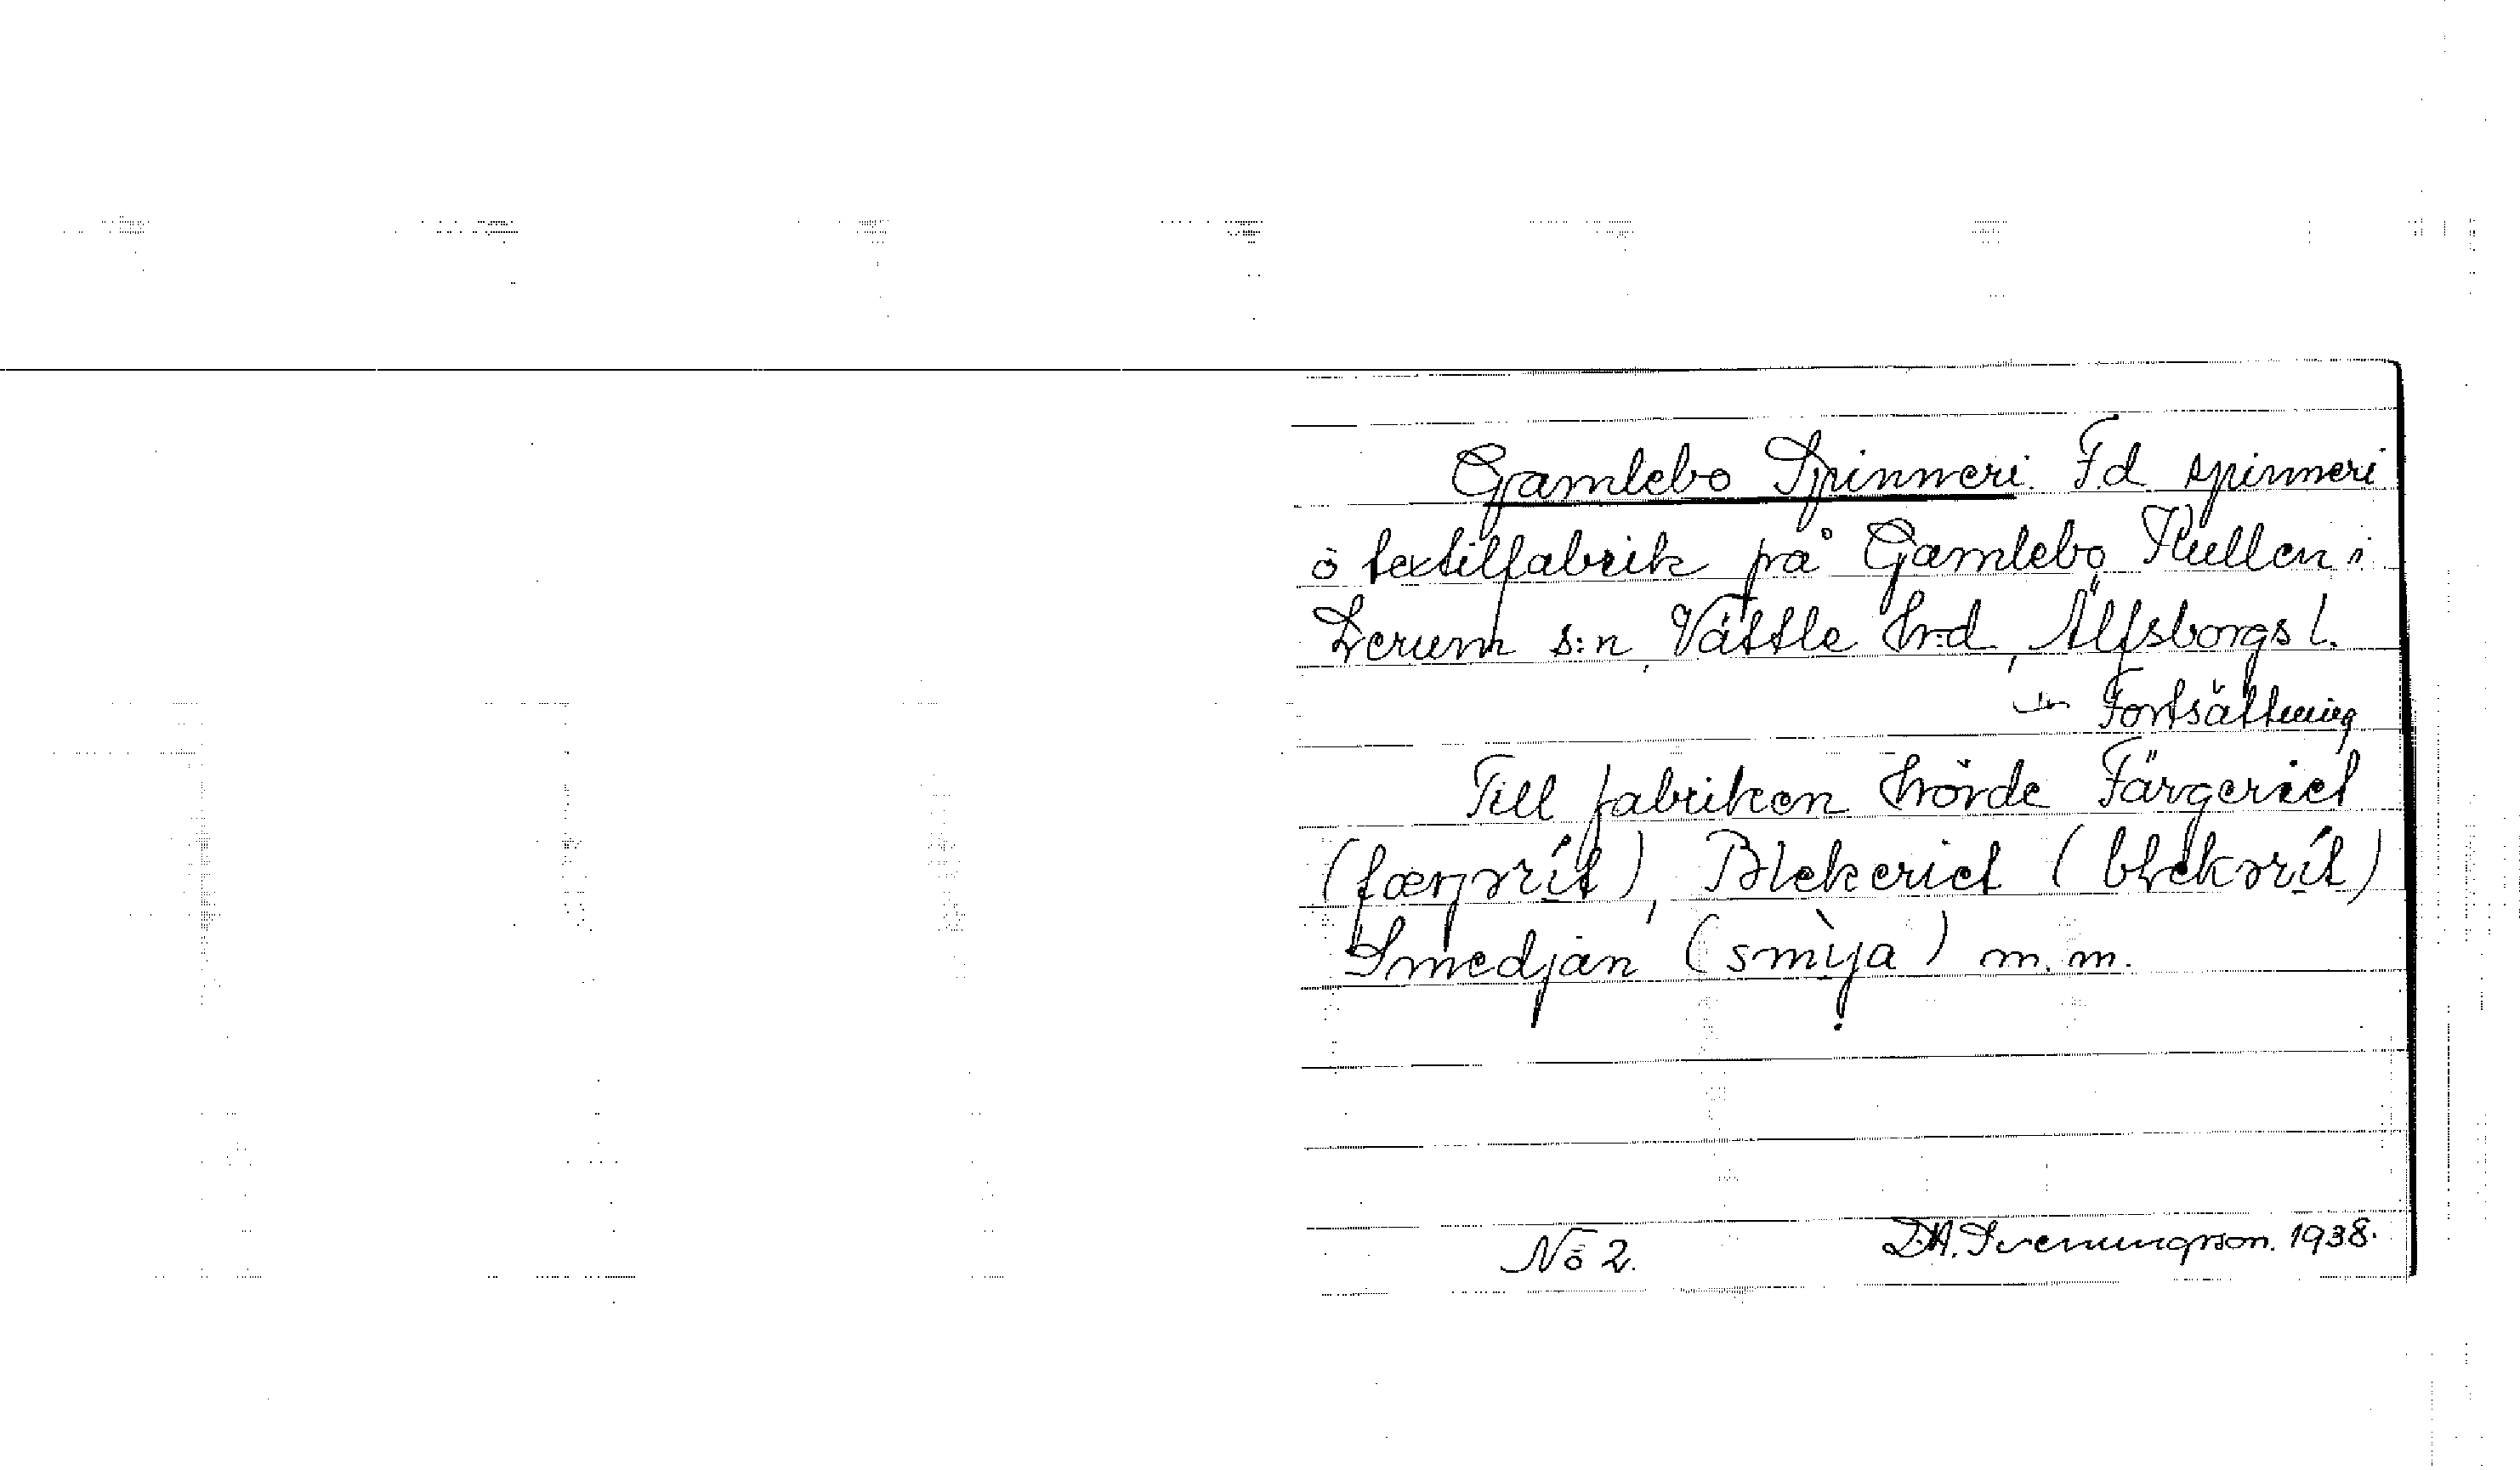 Gamlebo Spinneri. F.d. spinneri
o textilfabrik på Gamlebo Kullen i
Lerum s:n, Vättle hr:d, Älfsborgs l.
Fortsättning
Till fabriken hörde Färgeriet
Blekeriet
Smedjan (smìja) m.m.
No 2. D.A. Svenungson. 1938.